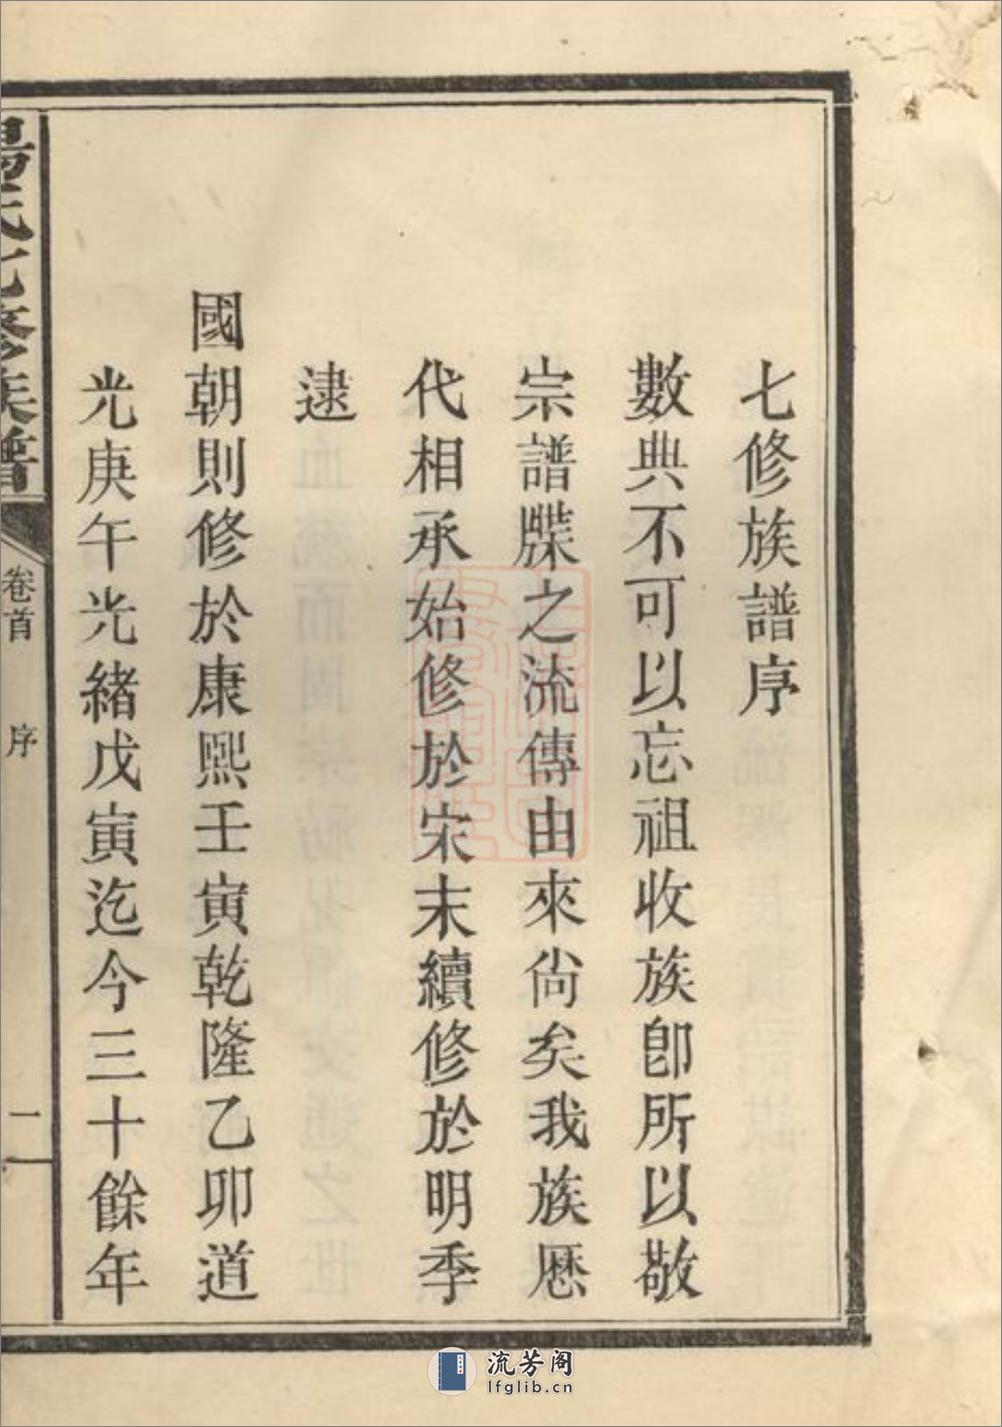 七修族譜序
數典不可以忘祖收族卽所以敬
宗譜牒之流傳由來尙矣我族歷
代相承始修於宋末續修於明季
逮
國朝則修於康熙壬寅乾隆乙卯道
光庚午光緒戊寅迄今三十餘年
氏七修族譜
卷首
序
一
流芳阁
lfglib.cn